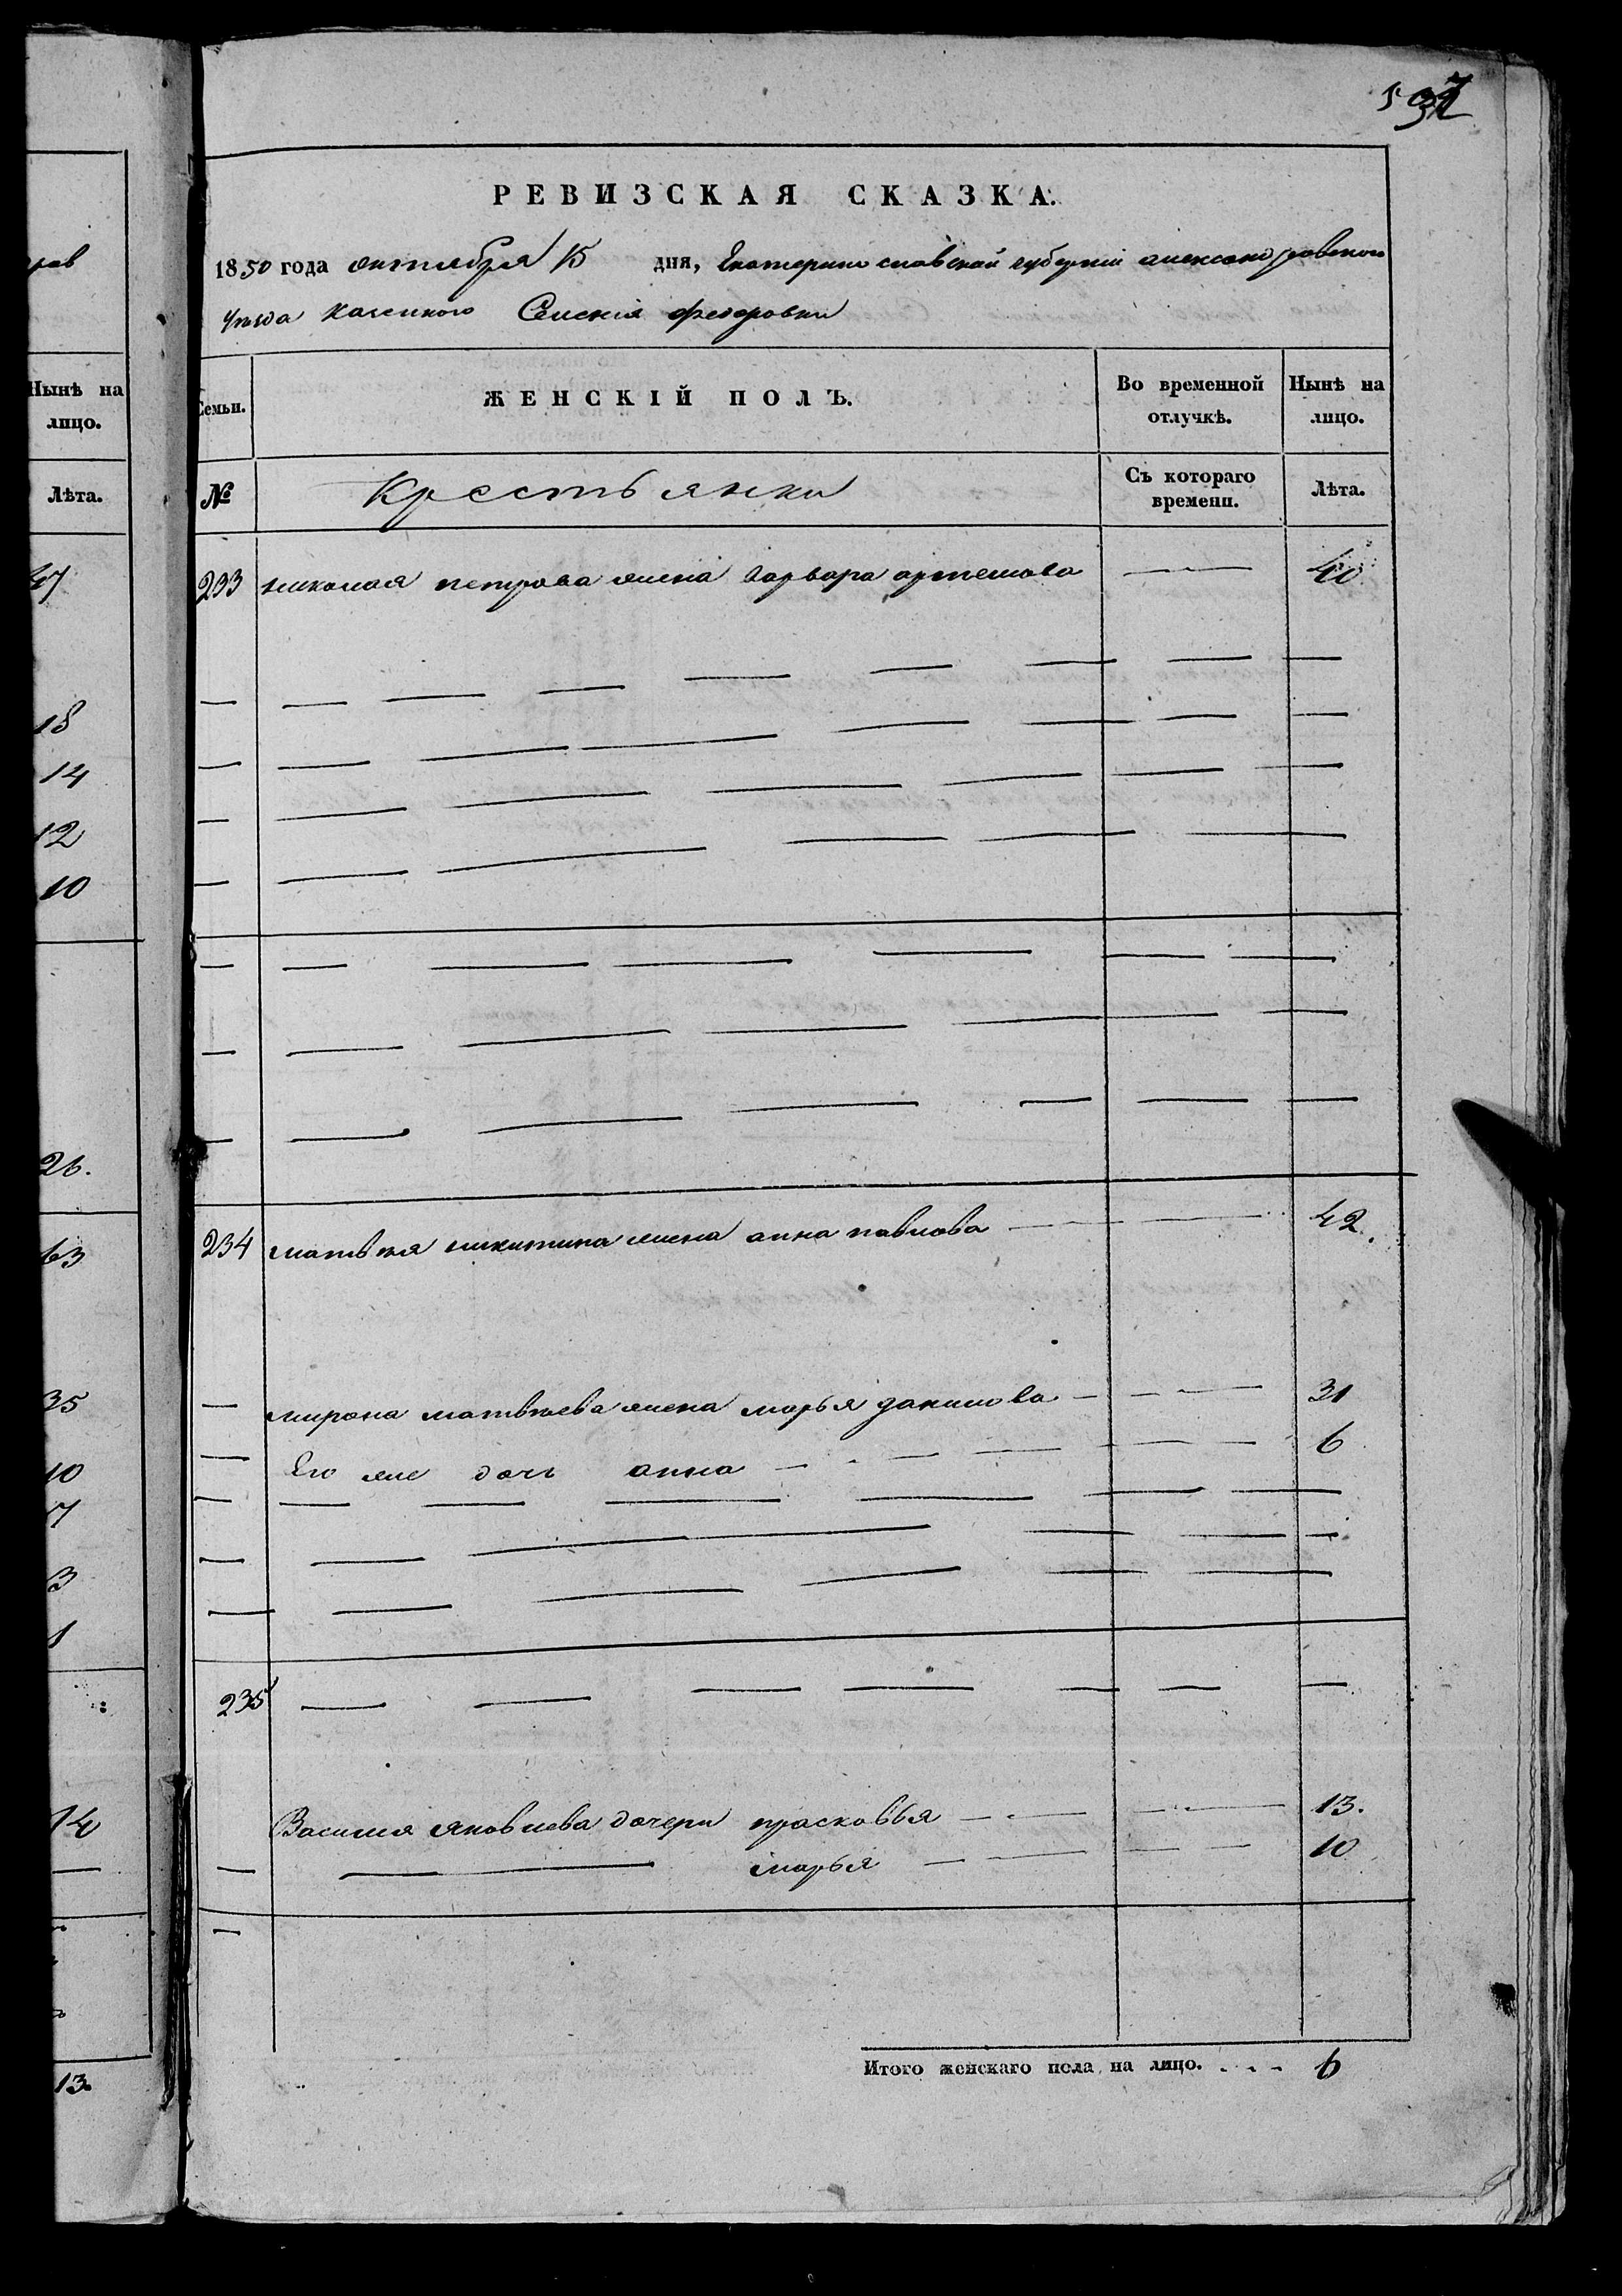 РЕВИЗСКАЯ СКАЗКА.
1850 года октября 15 дня, Екатеринославской губернии александровского
уѣзда казенного Селенія федоровки
Нынѣ на лицо.
Лѣта.
47
18
14
12
10
26.
63
35
10
7
3
1
14
13
Семьи.
ЖЕНСКІЙ ПОЛЪ.
Во временной отлучкѣ.
Нынѣ на лицо.
№
Крестьянки
Съ котораго времени.
Лѣта.
233 николая петрова жена варвара артемова — 40
234 матвѣя никитина жена анна павлова — 42.
— мирона матвѣева жена марья данилова — 31
— Его же дочь анна — 6
235 — — — — — — —
Василия яковлева дочери прасковья — 13.
— — марья — 10
Итого женскаго пола на лицо. . . . 6